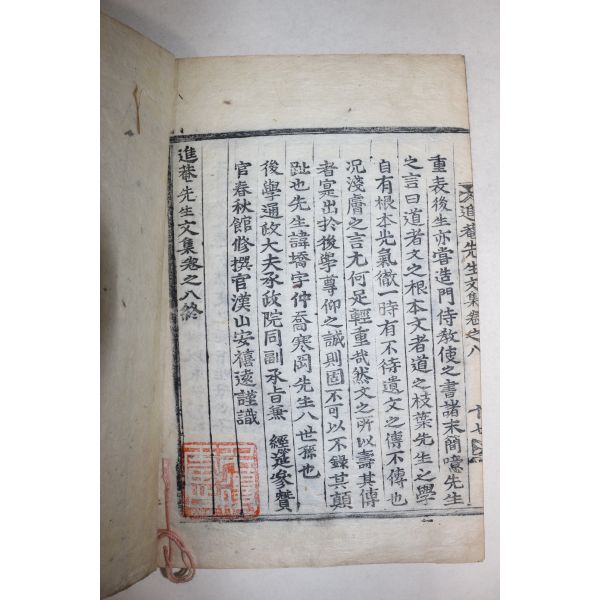 進菴先生文集卷之八
十七
重表後生亦嘗造門侍教使之書諸末簡噫先生
之言曰道者文之根本文者道之枝葉先生之學
自有根本光氣徹一時有不待遺文之傳不傳也
況淺膚之言尤何足輕重哉然文之所以壽其傳
者寔出於後學尊仰之誠則固不可以不錄其顛
趾也先生諱墧字仲喬寒岡先生八世孫也
後學通政大夫承政院同副承旨兼 經筵參贊
官春秋館修撰官漢山安禧遠謹識
進菴先生文集卷之八終